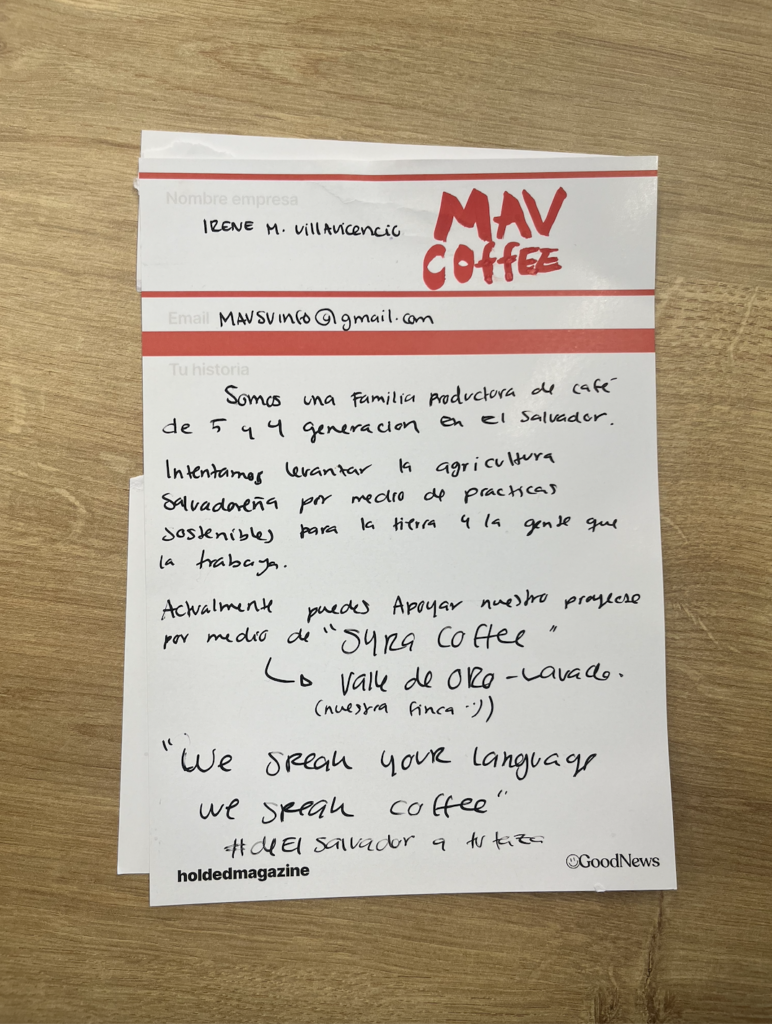 Nombre empresa
IRENE M. VIllAVICENCIO
MAV
COFFEE
Email MAVSVINFO@gmail.com
Tu historia
Somos una Familia productora de café
de 5 y 4 generacion en el Salvador.
Intentamos levantar la agricultura
Salvadoreña por medio de practicas
sostenibles para la tierra y la gente que
la trabaja.
Actualmente puedes Apoyar nuestro proyecto
por medio de "SYRA COFFEE"
↳ Valle de ORO - Lavado.
(nuestra finca :))
"We speak your language
we speak coffee"
#deEl Salvador a tu taza
holdedmagazine
GoodNews